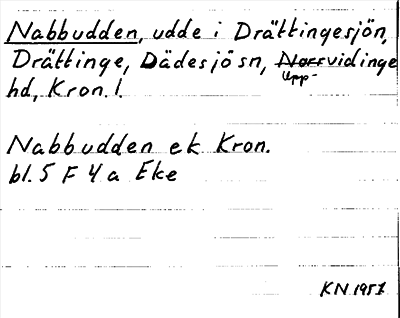 Nabbudden, udde i Drättingesjön,
Drättinge, Dädesjö sn, Norrvidinge
Upp-
hd, Kron. l.
Nabbudden ek Kron.
bl. 5 F 4 a Eke
KN 1957